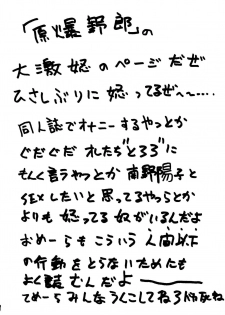 「原爆野郎」の
大激怒のページだぜ
ひさしぶりに怒ってるぜ〜〜……
同人誌でオナニーするやつとか
ぐだぐだ れたち"とろろ"に
もんく言うやつとか 南野陽子と
SEXしたいと思ってるやつらとか
よりも 怒ってる 奴がいるんだよ
おめーらも こういう 人間以下
の行動をとらないためにも
よく読むんだよ ―――
てめーら みんな うんこして ねろ